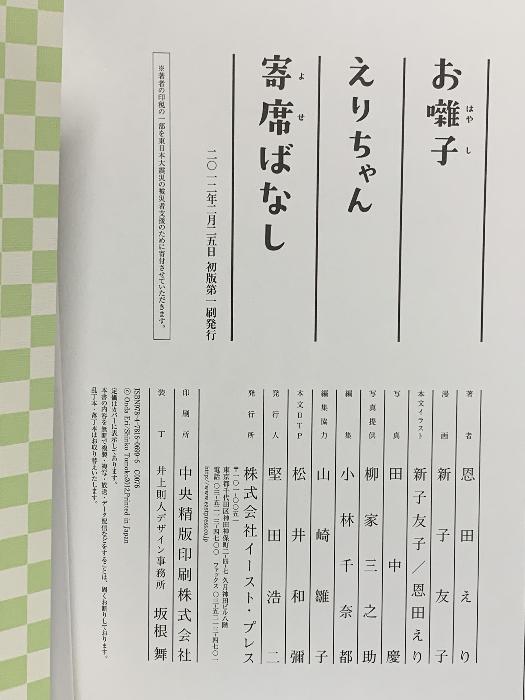 お囃子
はやし
えりちゃん
寄席ばなし
よせ
二〇一二年二月二五日 初版第一刷発行
※著者の印税の一部を東日本大震災の被災者支援のために寄付させていただきます。
著者 恩田えり
漫画 新子友子
本文イラスト 新子友子/恩田えり
写真 田中慶
写真提供 柳家三之助
編集 小林千奈都
編集協力 山崎雛子
本文DTP 松井和彌
発行人 堅田浩二
発行所 株式会社イースト・プレス
〒一〇一-〇〇五一
東京都千代田区神田神保町二-四-七 久月神田ビル八階
電話 〇三-五二一三-四七〇〇 ファックス 〇三-五二一三-四七〇一
http://www.eastpress.co.jp
印刷所 中央精版印刷株式会社
装丁 井上則人デザイン事務所 坂根舞
ISBN978-4-7816-0699-6 C0076
2012Printed in Japan
定価はカバーに表示してあります。
本書の内容を無断で複製・複写・放送・データ配信などをすることは、固くお断りしております。
乱丁本・落丁本はお取り替えいたします。